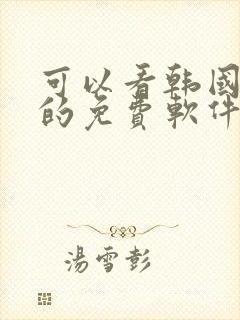 可以看韩國
的免費軟件
湯雪彭